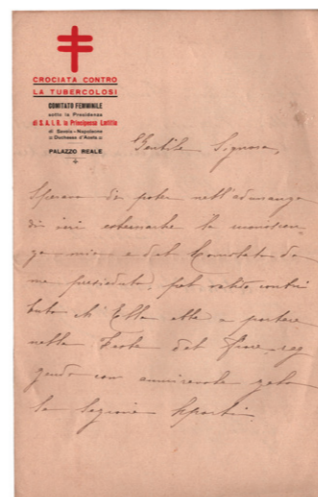 CROCIATA CONTRO
LA TUBERCOLOSI
COMITATO FEMMINILE
sotto la Presidenza
di S. A. I. R. la Principessa Laetitia
di Savoia-Napoleone
Duchessa d'Aosta
PALAZZO REALE
Gentile Signora,
Speravo di poter nell'adunanza
di ieri esternarle la
mia e del Comitato da
me presieduto, pel valido contri
buto ch'Ella ebbe a portare
nella Festa del fiore, reg
gendo con ammirevole zelo
la Sezione